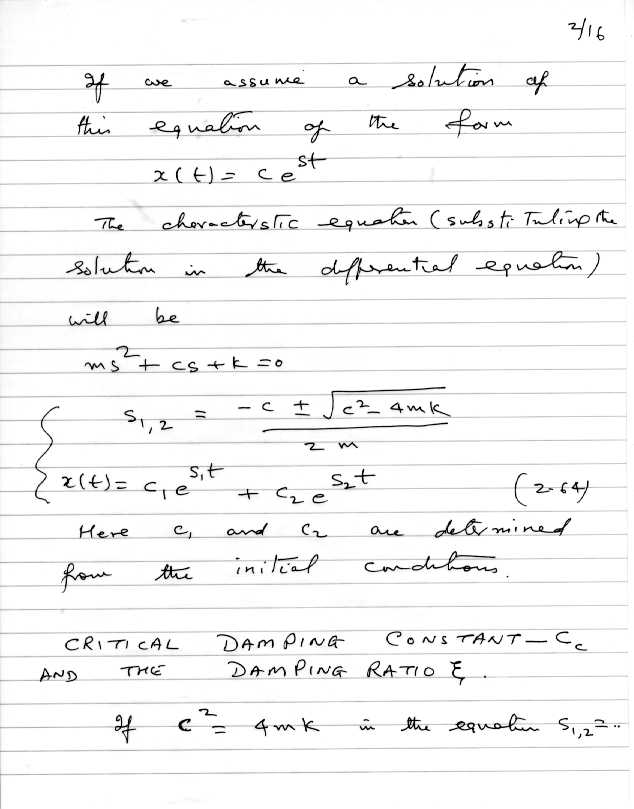 2/16
If we assume a solution of
this equation of the form
x(t) = ce^st
The characterstic equation (substituting the
solution in the differential equation)
will be
ms² + cs + k = 0
S₁,₂ = -c ± √c² - 4mk / 2m
x(t) = c₁e^s₁t + c₂e^s₂t (2-64)
Here c₁ and c₂ are determined
from the initial conditions.
CRITICAL DAMPING CONSTANT - Cc
AND THE DAMPING RATIO ξ.
If c² = 4mk in the equation S₁,₂ = ..